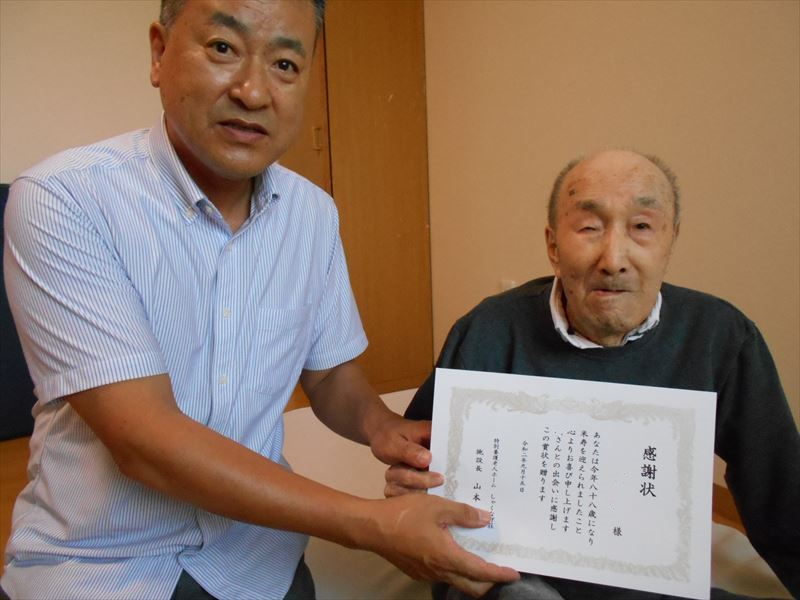 感謝状
様
あなたは今年八十八歳になり
米寿を迎えられましたこと
心よりお喜び申し上げます
さんとの出会いに感謝し
この賞状を贈ります
令和二年九月十五日
特別養護老人ホーム しゃくなげ荘
施設長 山本